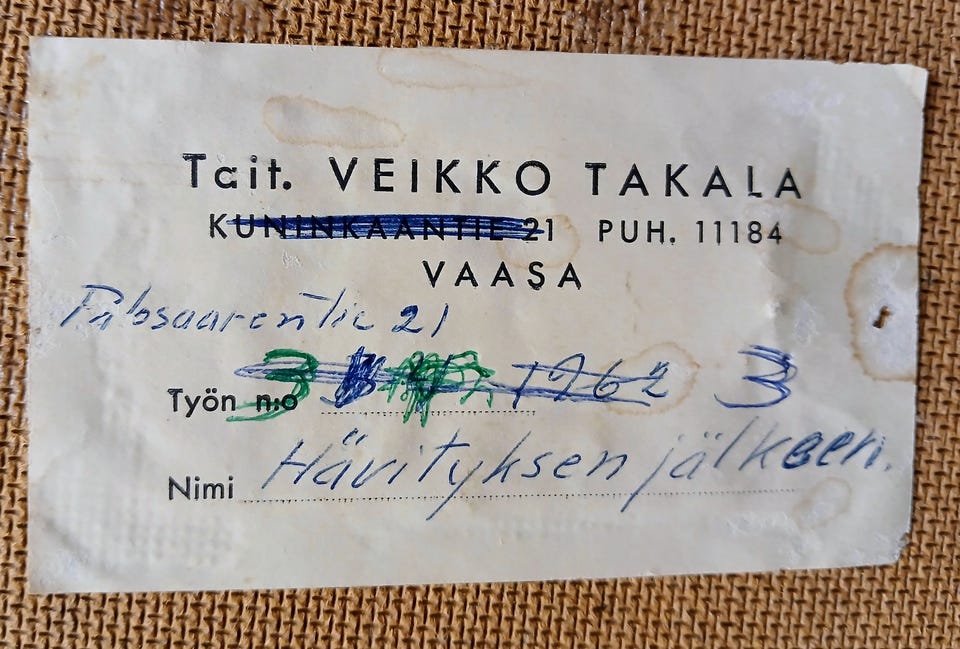 Tait. VEIKKO TAKALA
KUNINKAANTIE 21 PUH. 11184
VAASA
21
Työn n:o 3 1962 3
Nimi Hävityksen jälkeen.